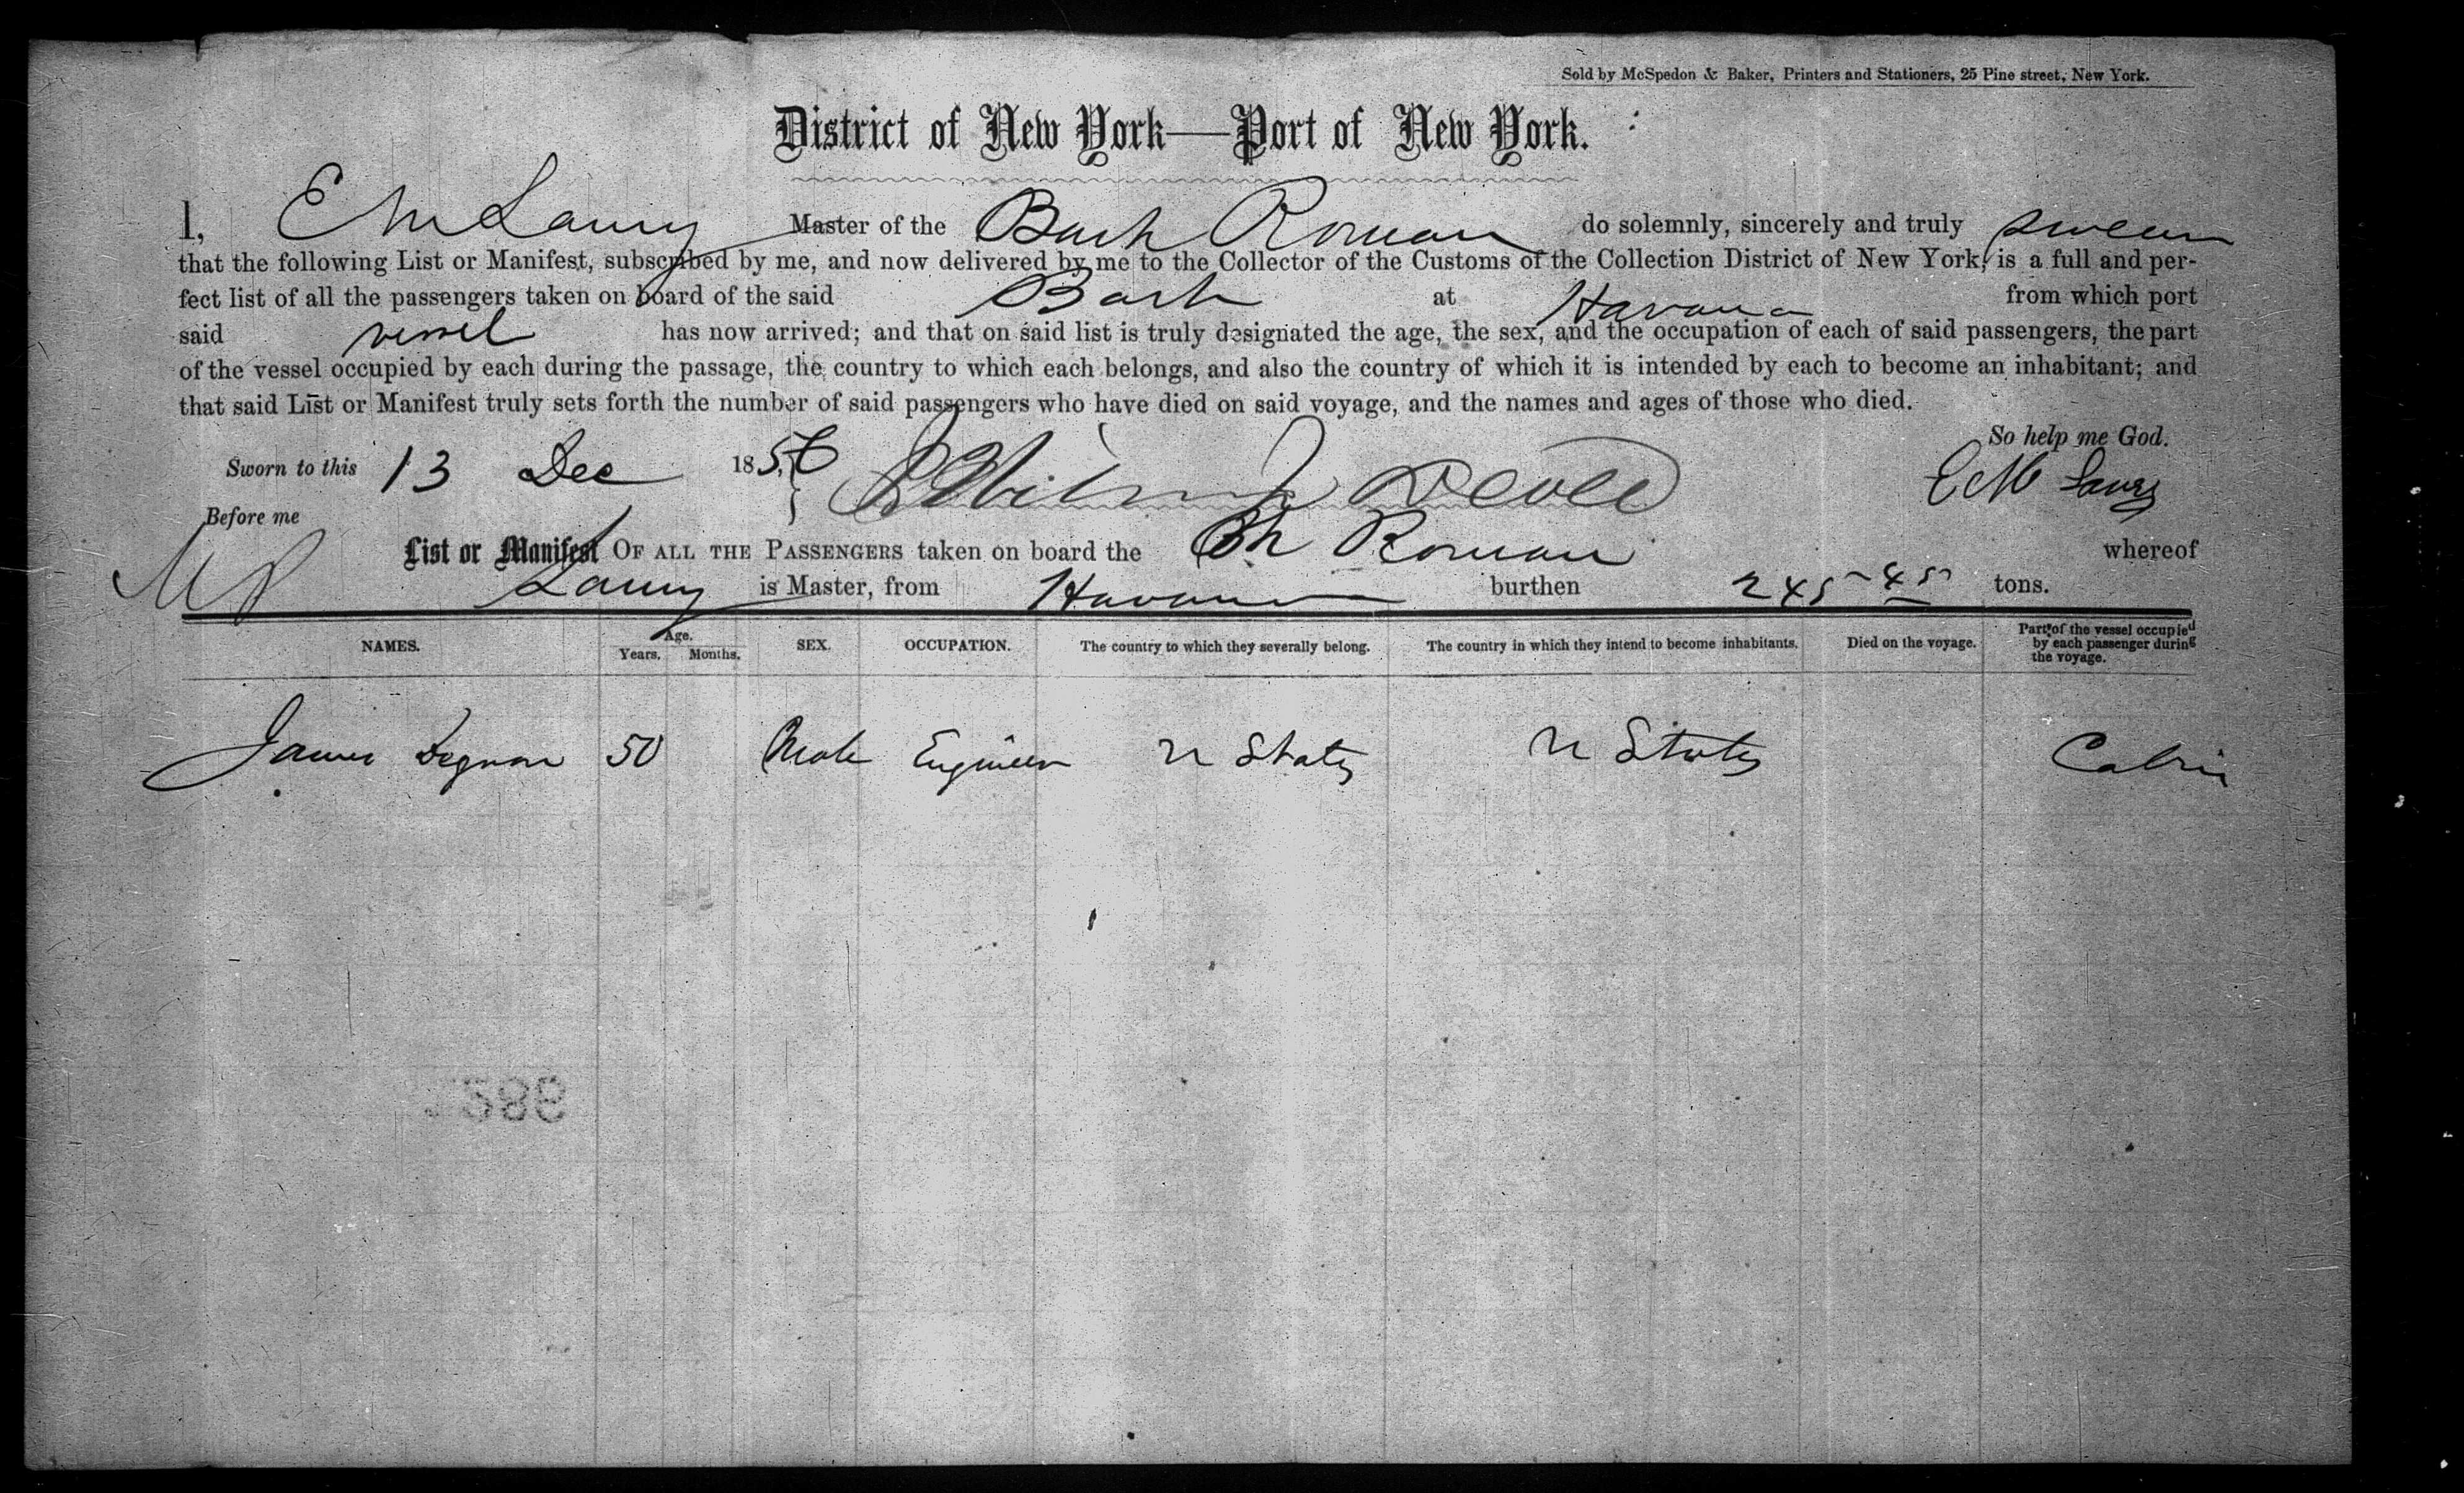 Sold by McSpedon & Baker, Printers and Stationers, 25 Pine street, New York.
District of New York—Port of New York.
I, E M Master of the Bark Roman do solemnly, sincerely and truly swear
that the following List or Manifest, subscribed by me, and now delivered by me to the Collector of the Customs of the Collection District of New York, is a full and per-
fect list of all the passengers taken on board of the said Bark at Havana from which port
said vessel has now arrived; and that on said list is truly designated the age, the sex, and the occupation of each of said passengers, the part
of the vessel occupied by each during the passage, the country to which each belongs, and also the country of which it is intended by each to become an inhabitant; and
that said List or Manifest truly sets forth the number of said passengers who have died on said voyage, and the names and ages of those who died.
So help me God.
Sworn to this 13 Dec 1856
E M
Before me
List or Manifest OF ALL THE PASSENGERS taken on board the Bk Roman whereof
is Master, from Havana burthen 245-45 tons.
NAMES. Age. Years. Months. SEX. OCCUPATION. The country to which they severally belong. The country in which they intend to become inhabitants. Died on the voyage. Part of the vessel occupied by each passenger during the voyage.
James Degnon 50 Male Engineer U States U States Cabin